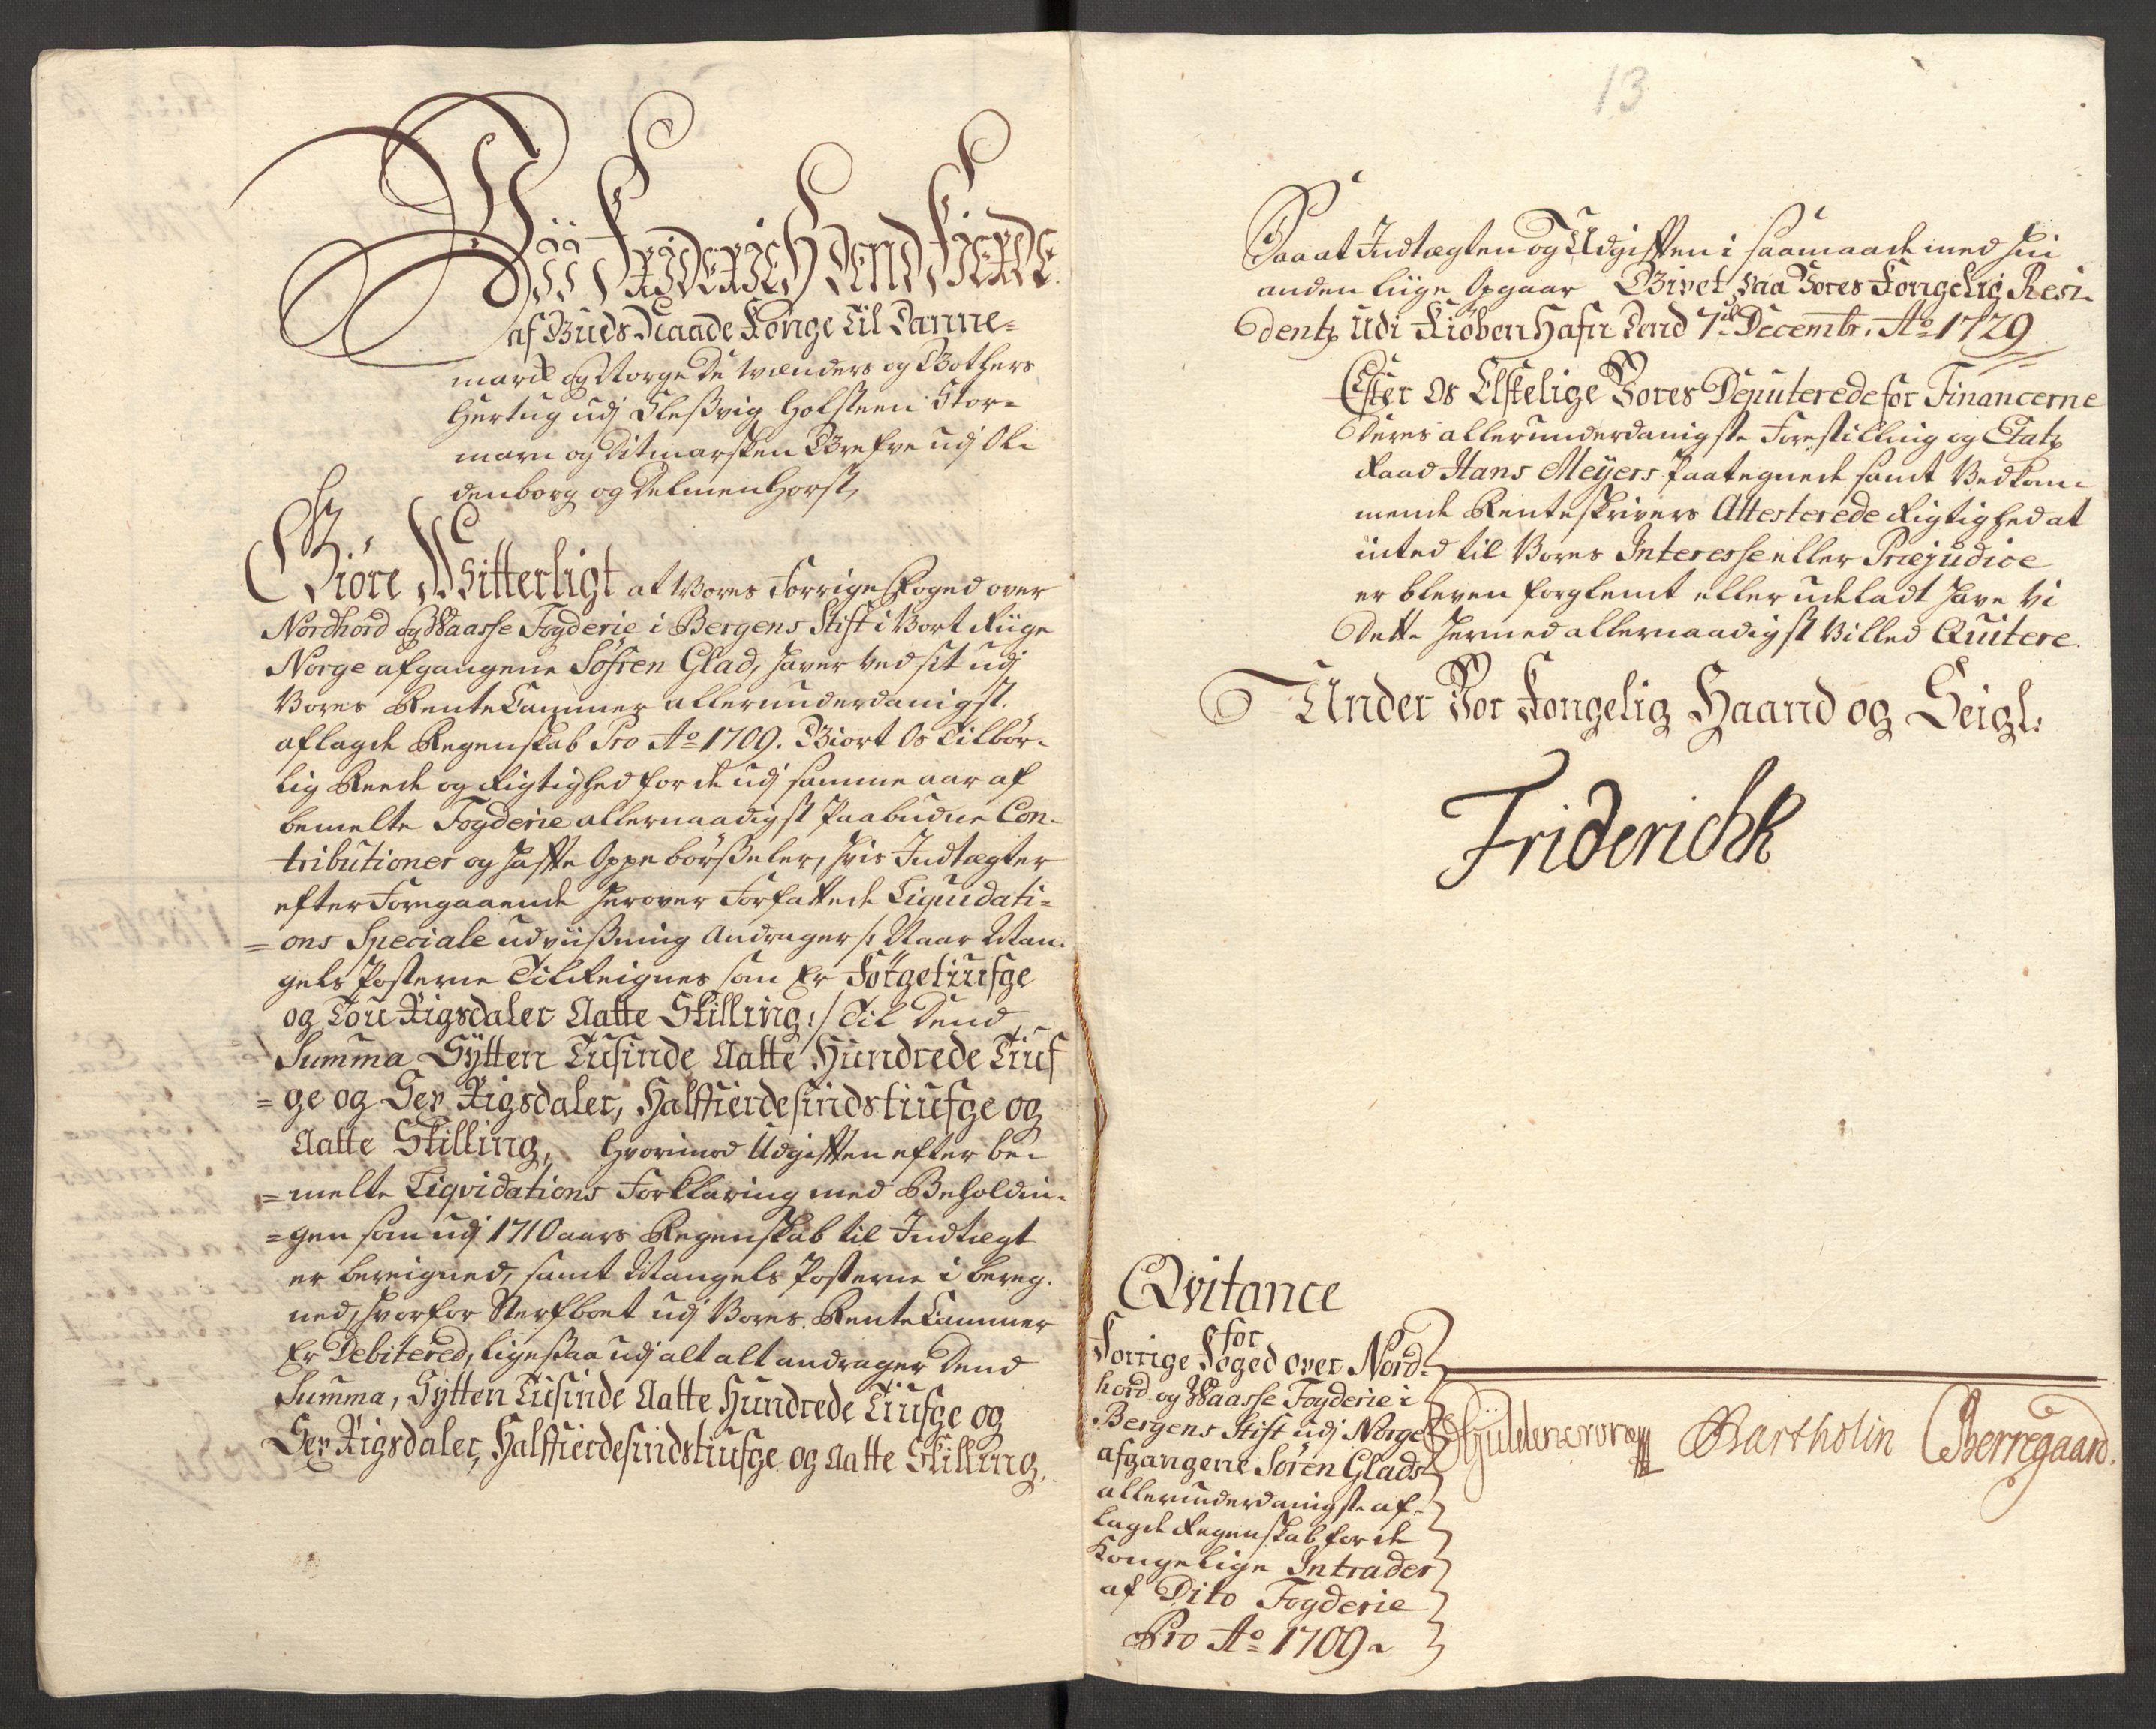 Wii Friderich dend Fierde
af Guds Naade Konge til Danne-
march og Norge De Wenders og Gothers
Hertug udj Slesvig Holsteen Stor-
marn og Ditmarsken Grefve udj Ol-
denborg og Delmenhorst,
Giöre Witterligt at Vores Forrige Foged over
Nordhord og Waasse Fogderie i Bergens Stift i Vort Riige
Norge afgangene Söfren Glad, haver ved sit udj
Vores RenteCammer allerunderdanigst.
aflagde Regenskab Pro Ao 1709. Giort Os Tilbör-
lig Reede og Rigtighed for de udj samme aar af
bemelte Fogderie allernaadigst Paabudne Con-
tributioner og hafte Oppebörßeler, hvis Indtægter
efter Foregaaende herover Forfattede Liquidati-
=ons Speciale udviißning Andrager /: Naar Man-
gels Posterne TilReignes som Er Förgetiufge
og Tou Rigsdaler Aatte Skilling :/ Til Dend
Summa Sÿtten Tusinde Aatte Hundrede Tiuf
=ge og Sex Rigsdaler, Halffierdesindstiufge og
Aatte Skilling, Hvorimod Udgiften efter be-
=melte Liqvidations Forklaring med Beholdin-
=gen som udj 1710 aars Regenskab til Indtægt
er bereigned, samt Mangels Posterne i bereg-
ned, hvorfor Sterfboet udj Vores RenteCammer
Er Debitered, ligesaa udj alt alt andrager Dend
Summa, Sÿtten Tusinde Aatte Hundrede Tiufge og
Sex Rigsdaler, Halffierdesindstiufge og Aatte Skilling,
13
Saa at Indtægten og Udgiften i saamaade med hin
anden liige Opgaar Givet paa Vores Kongelig Resi-
dentz udi Kiöbenhafn Dend 7de Decembr. Ao 1729
Efter Os Elskelige Vores Deputerede for Financerne
Deres allerunderdanigste Forestilling og Etatz
Raad Hans Meÿers Paategnede samt Vedkom-
mende Renteskrivers Attesterede Rigtighed at
inted til Vores Interesse eller Præjudice
er bleven forglemt eller udeladt have Vi
Dette hermed allernaadigst Villed Quitere.
Under Vor Kongelig Haand og Seigl:
Friderich R
Qvitance
for
Forrige Foged over Nord-
hord og Waasse Fogderie i
Bergens Stift udj Norge
afgangene Sören Glads
allerunderdanigste af-
lagde Regenskab for de
Kongelige Intrader
af Dito Fogderie
Pro Ao 1709
Gÿldencrone Bartholin CBerregaard.